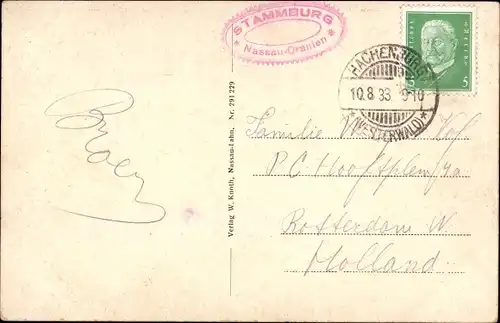 STAMMBURG
Nassau-Oranien
HACHENBURG
10.8.33. 9-10
(WESTERWALD)
5
Verlag W. Knoth, Nassau-Lahn, Nr. 291229
Familie
P.C. Hooftplein
Rotterdam W.
Holland